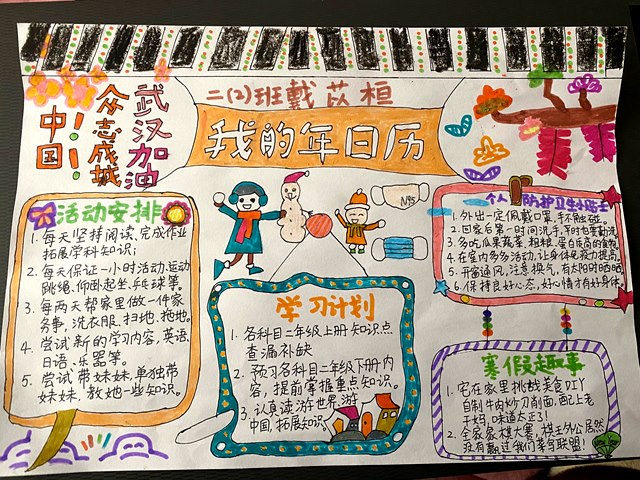 武汉加油
众志成城
中国!!
二(2)班戴苡桓
我的年日历
N95
活动安排
1. 每天坚持阅读、完成作业
拓展学科知识;
2. 每天保证一小时活动、运动
跳绳、仰卧起坐、乒乓球等。
3. 每两天帮家里做一件家
务事,洗衣服、扫地、拖地。
4. 尝试新的学习内容,英语、
日语、乐器等。
5. 尝试带妹妹,单独带
妹妹,教她一些知识。
学习计划
1. 各科目二年级上册知识点
查漏补缺
2. 预习各科目二年级下册内
容,提前掌握重点知识。
3. 认真读游世界、游
中国,拓展知识。
个人防护卫生小贴士
1. 外出一定佩戴口罩,手不触碰。
2. 回家后第一时间洗手,平时也要勤洗。
3. 多吃瓜果蔬菜、粗粮、蛋白质高的食物。
4. 在室内多多活动,让身体免疫力提高。
5. 开窗通风,注意换气,有太阳时晒晒。
6. 保持良好心态,好心情才有好身体。
寒假趣事
1. 宅在家里挑战美食DIY
自制牛肉炒刀削面,配上老
干妈,味道太正了!
2. 全家象棋大赛,棋王外公居然
没有赢过我们爹写联盟!